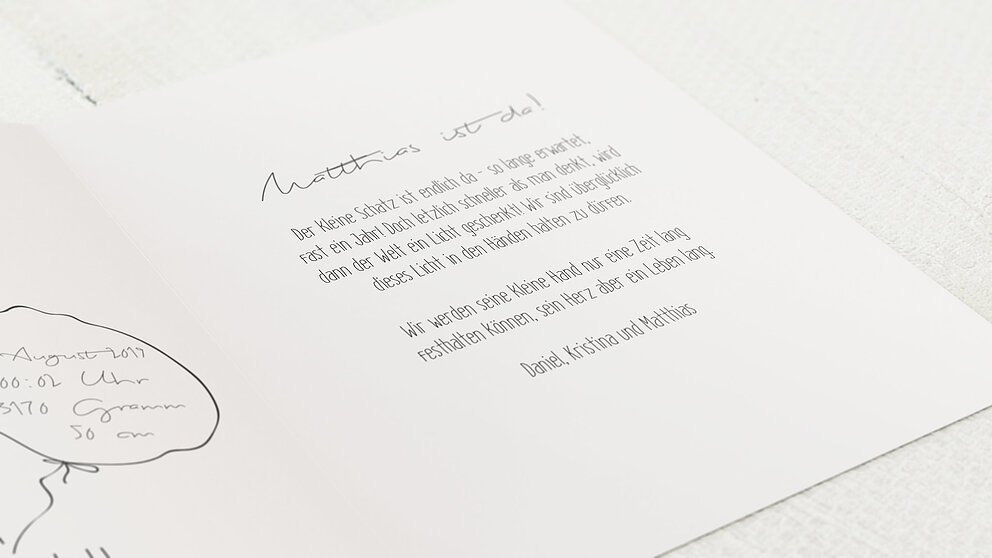 August 2019
00:02 Uhr
3170 Gramm
50 cm
Matthias ist da!
Der kleine Schatz ist endlich da - so lange erwartet,
fast ein Jahr! Doch letzlich schneller als man denkt, wird
dann der Welt ein Licht geschenkt! Wir sind überglücklich
dieses Licht in den Händen halten zu dürfen.
Wir werden seine kleine Hand nur eine Zeit lang
festhalten können, sein Herz aber ein Leben lang.
Daniel, Kristina und Matthias